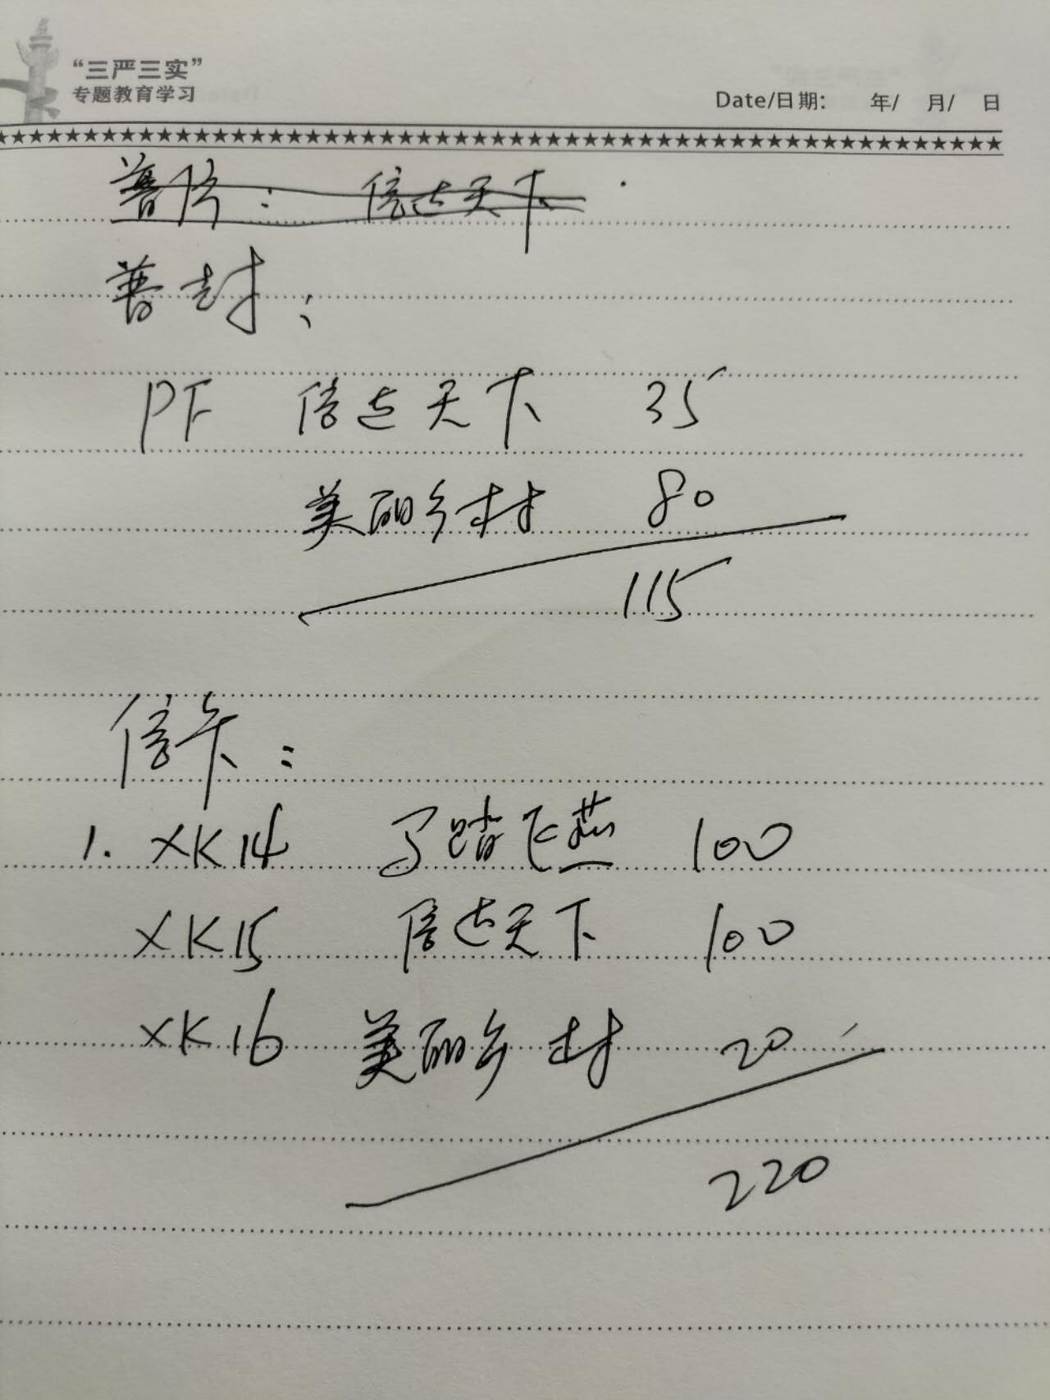 “三严三实”
专题教育学习
Date/日期： 年/ 月/ 日
★★★★★★★★★★★★★★★★★★★★★★★★★★★★★★★★★★★★★★★★★★★★★★★★★★★★★★★★★★★
普片： 信达天下
普封：
PF 信达天下 35
美丽乡村 80
115
信卡：
1. XK14 马踏飞燕 100
XK15 信达天下 100
XK16 美丽乡村 20
220